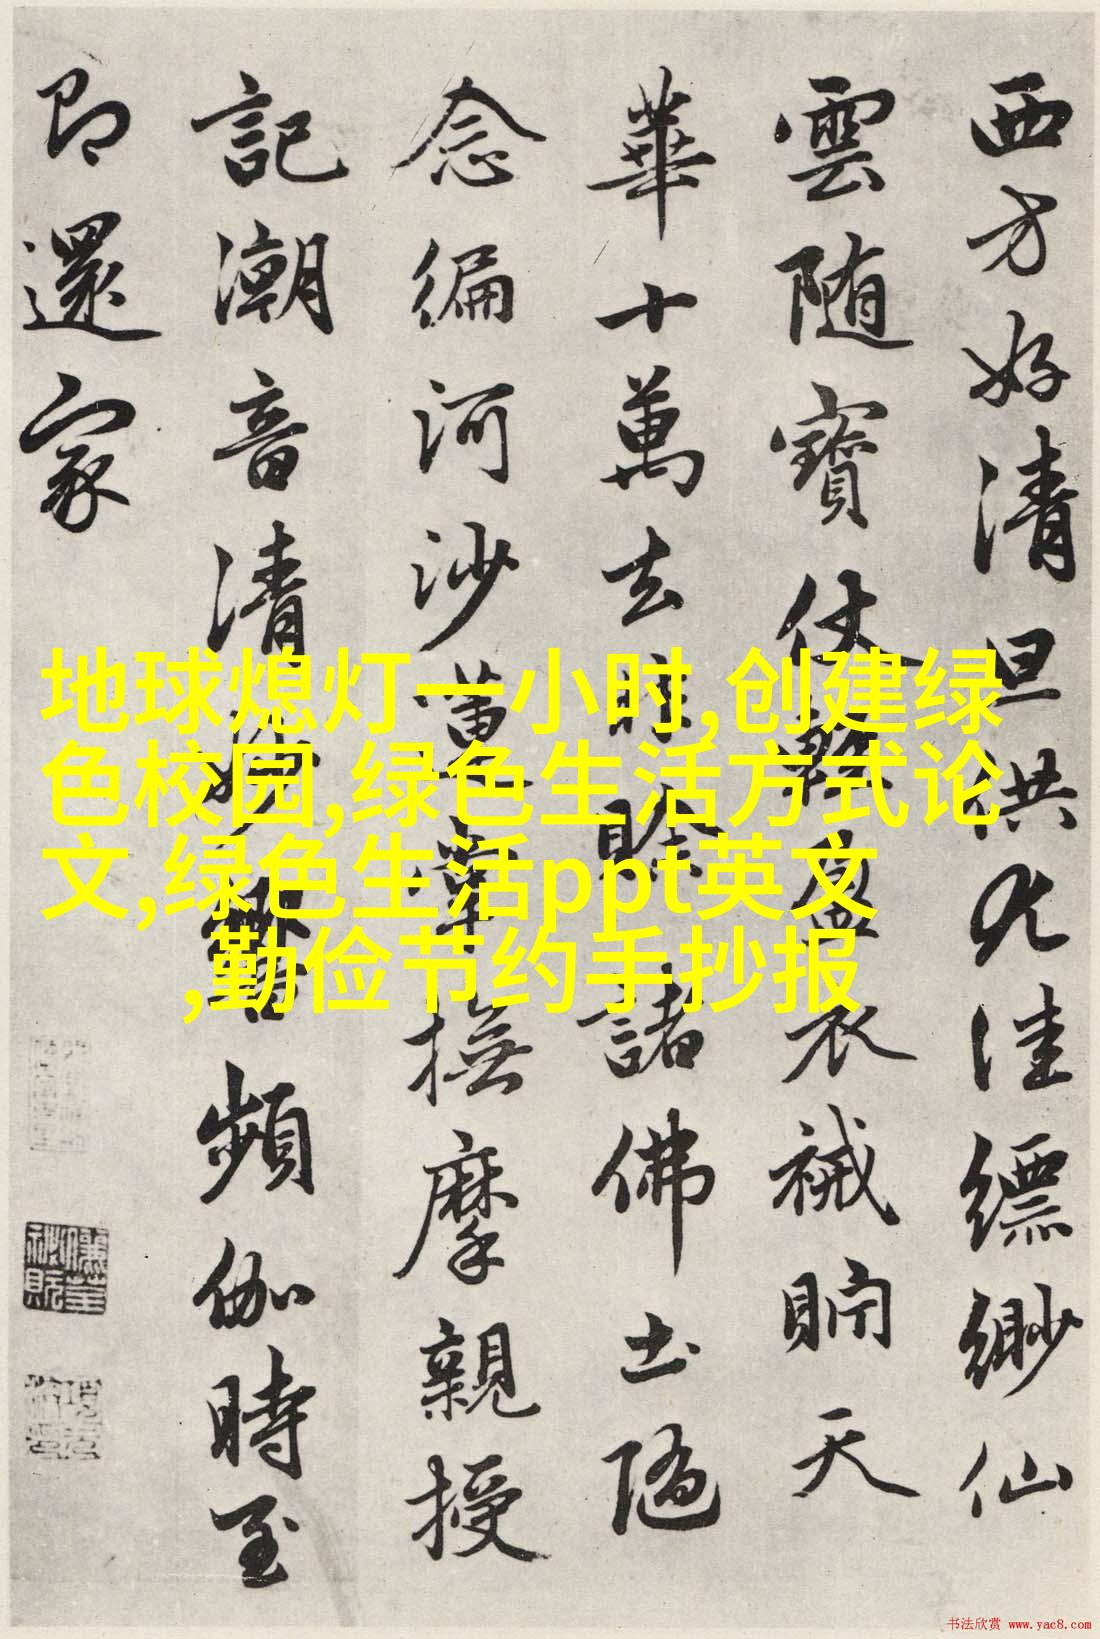 西方好清旦供尤佳縹緲仙
雲随寶仗輕盈衣裓貯天
華十萬去賒諸佛土隨
念徧河沙蓮掌撫摩親授
記潮音清妙響頻伽時至
即還家
地球熄灯一小时,创建绿
色校园,绿色生活方式论
文,绿色生活ppt英文
,勤俭节约手抄报
书法欣赏 www.yac8.com